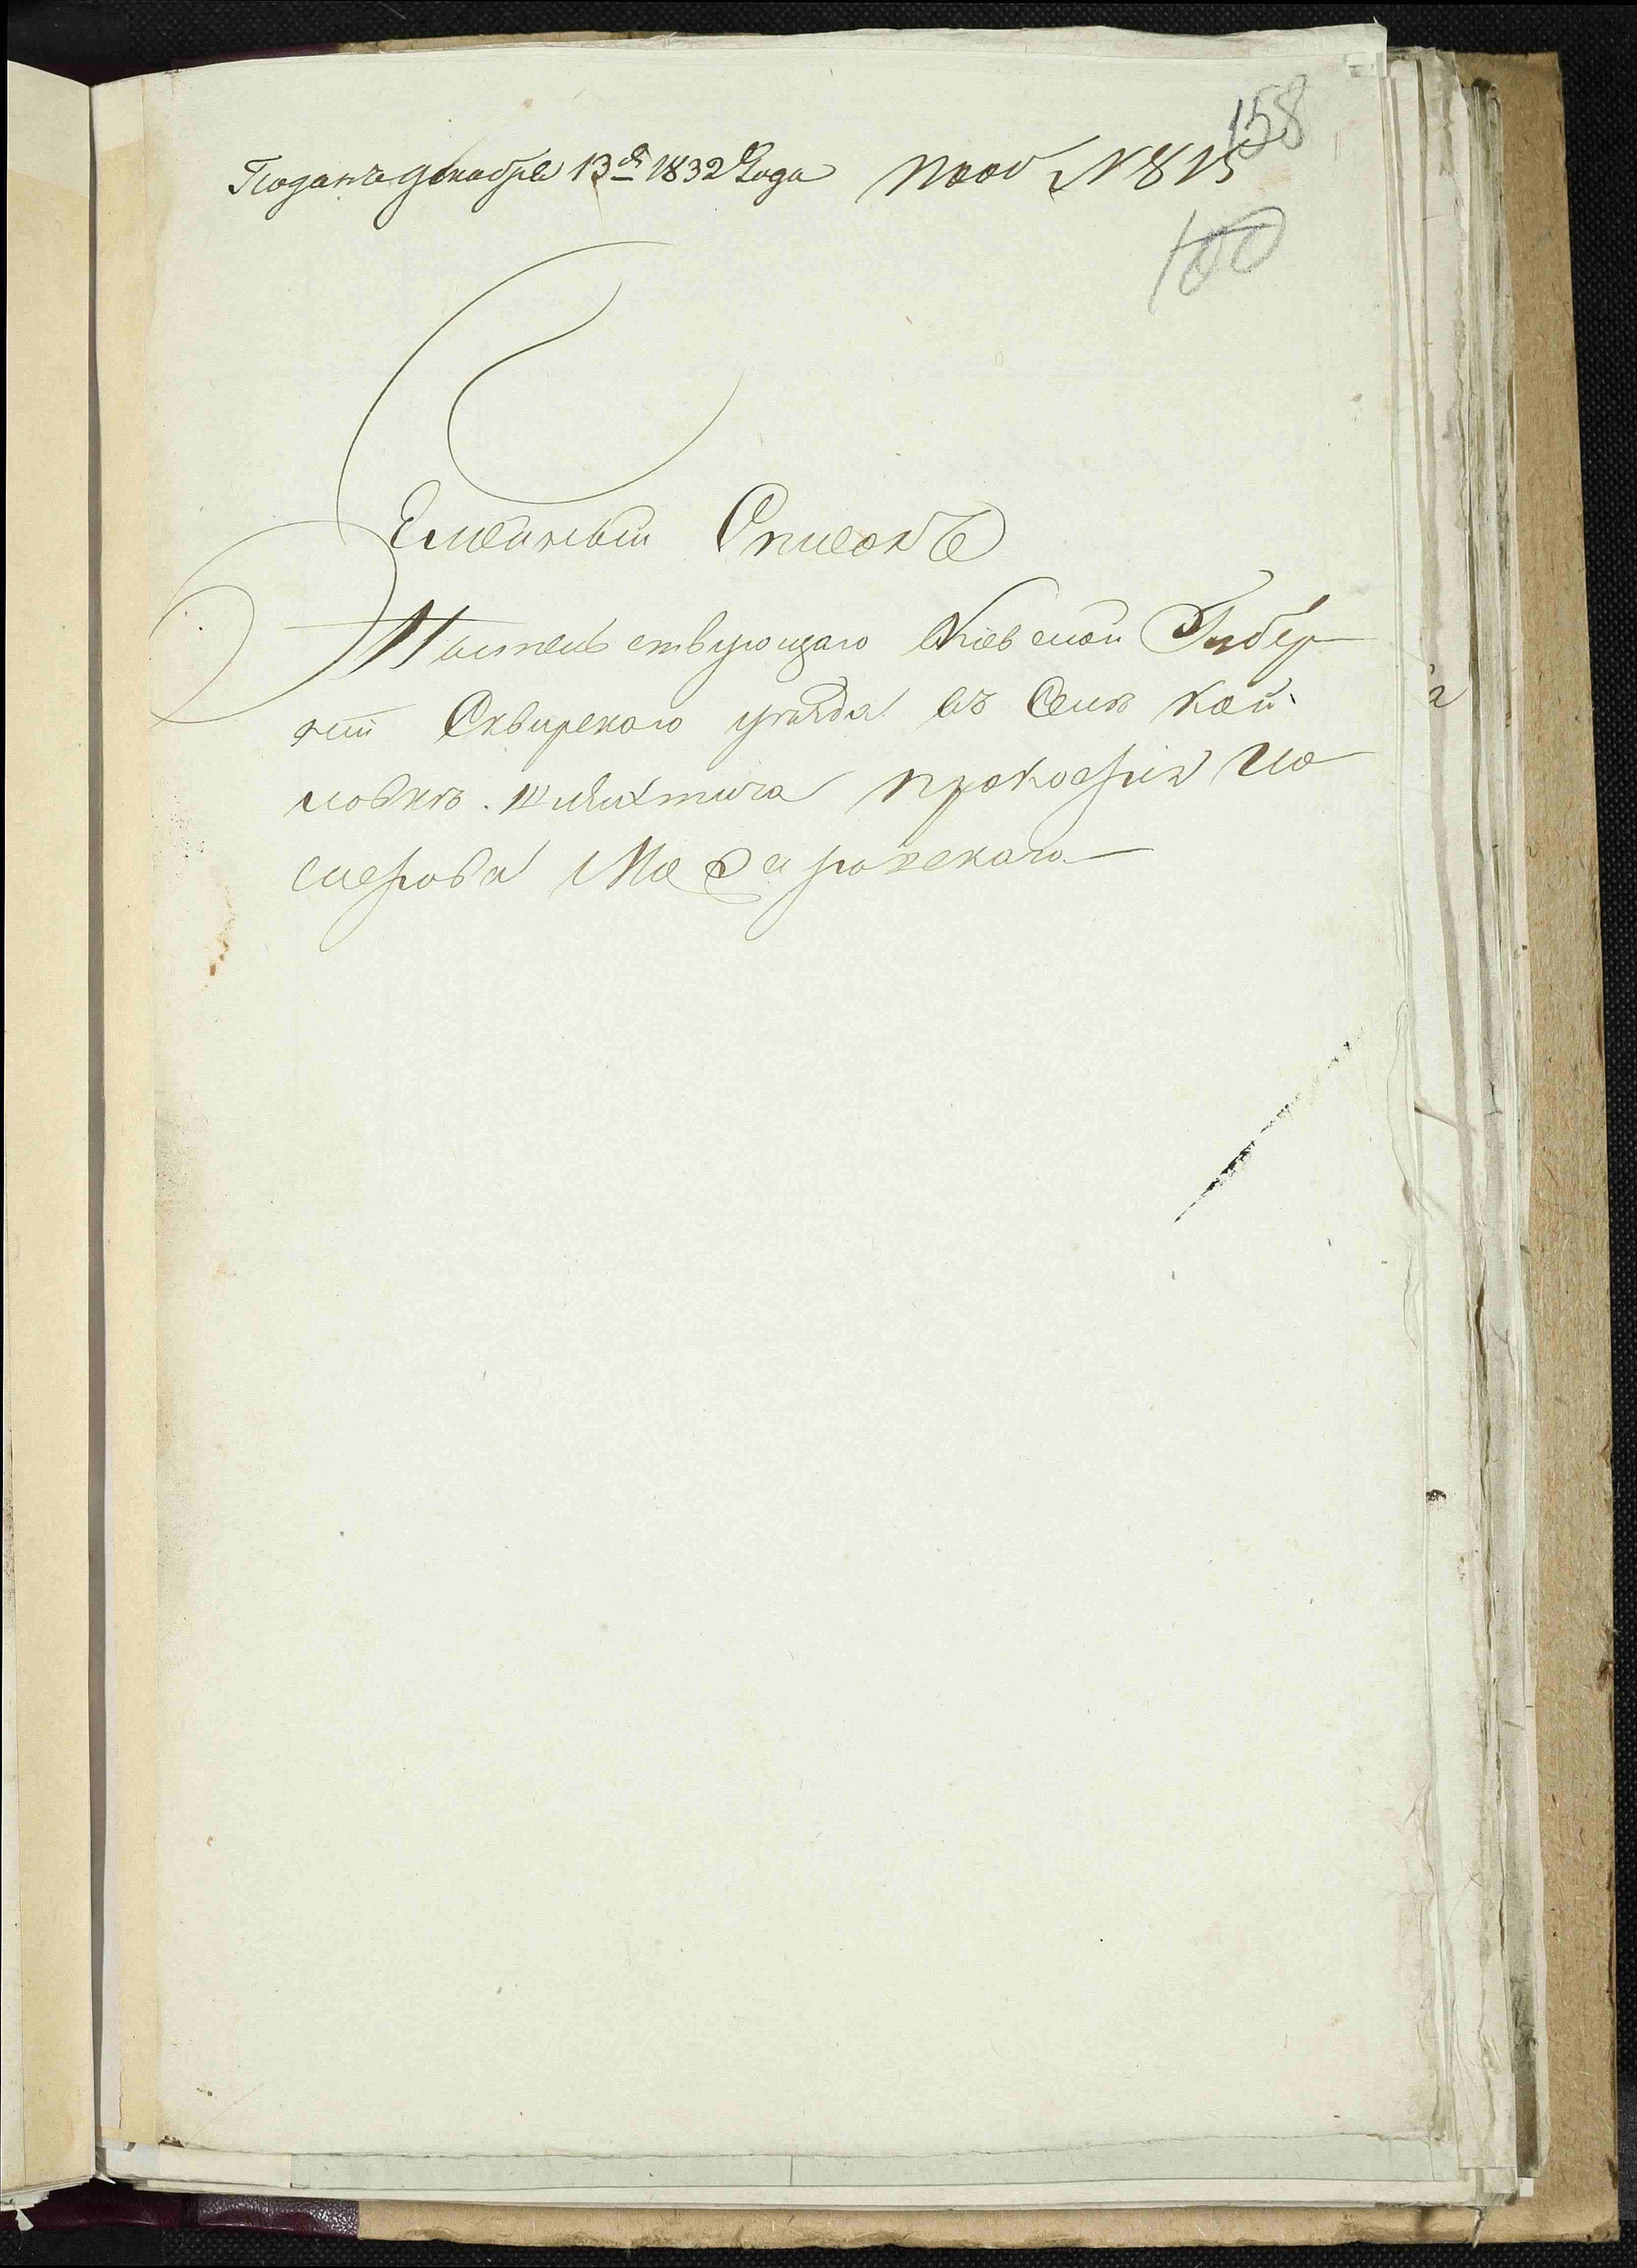 158
Поданъ декабря 13 дн 1832 Года под № 815
100
Семейный Списокъ
Жительствующаго Киевской Губер
ніи Сквирского уезда въ Селе Кай
ловке. Шляхтича Прокофія Ио
сифова Мазаровского